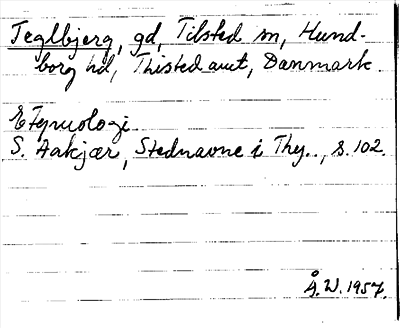 Teglbjerg, gd, Tilsted sn, Hund-
borg hd, Thisted amt, Danmark.
Etymologi.
S. Aakjær, Stednavne i Thy.., s. 102.
Å.W. 1957.